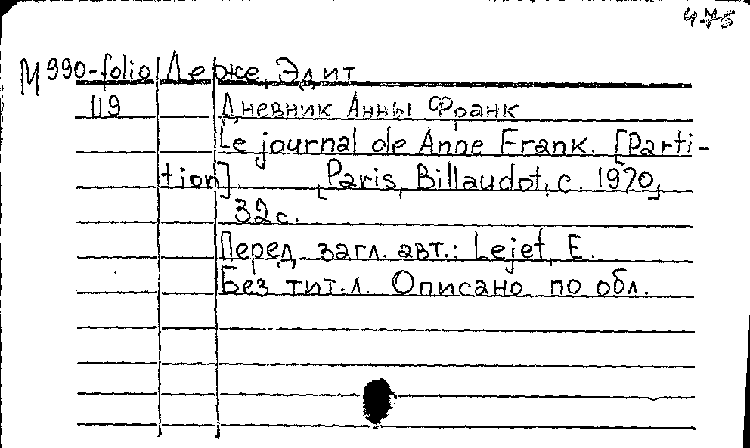 4-75
М 990-folio Лерже, Эдит
119 Дневник Анны Франк
Le journal de Anne Frank. [Parti-
tion]. [Paris, Billaudot, c. 1970]
32 с.
Перед загл. авт.: Lejet, E.
Без тит. л. Описано по обл.